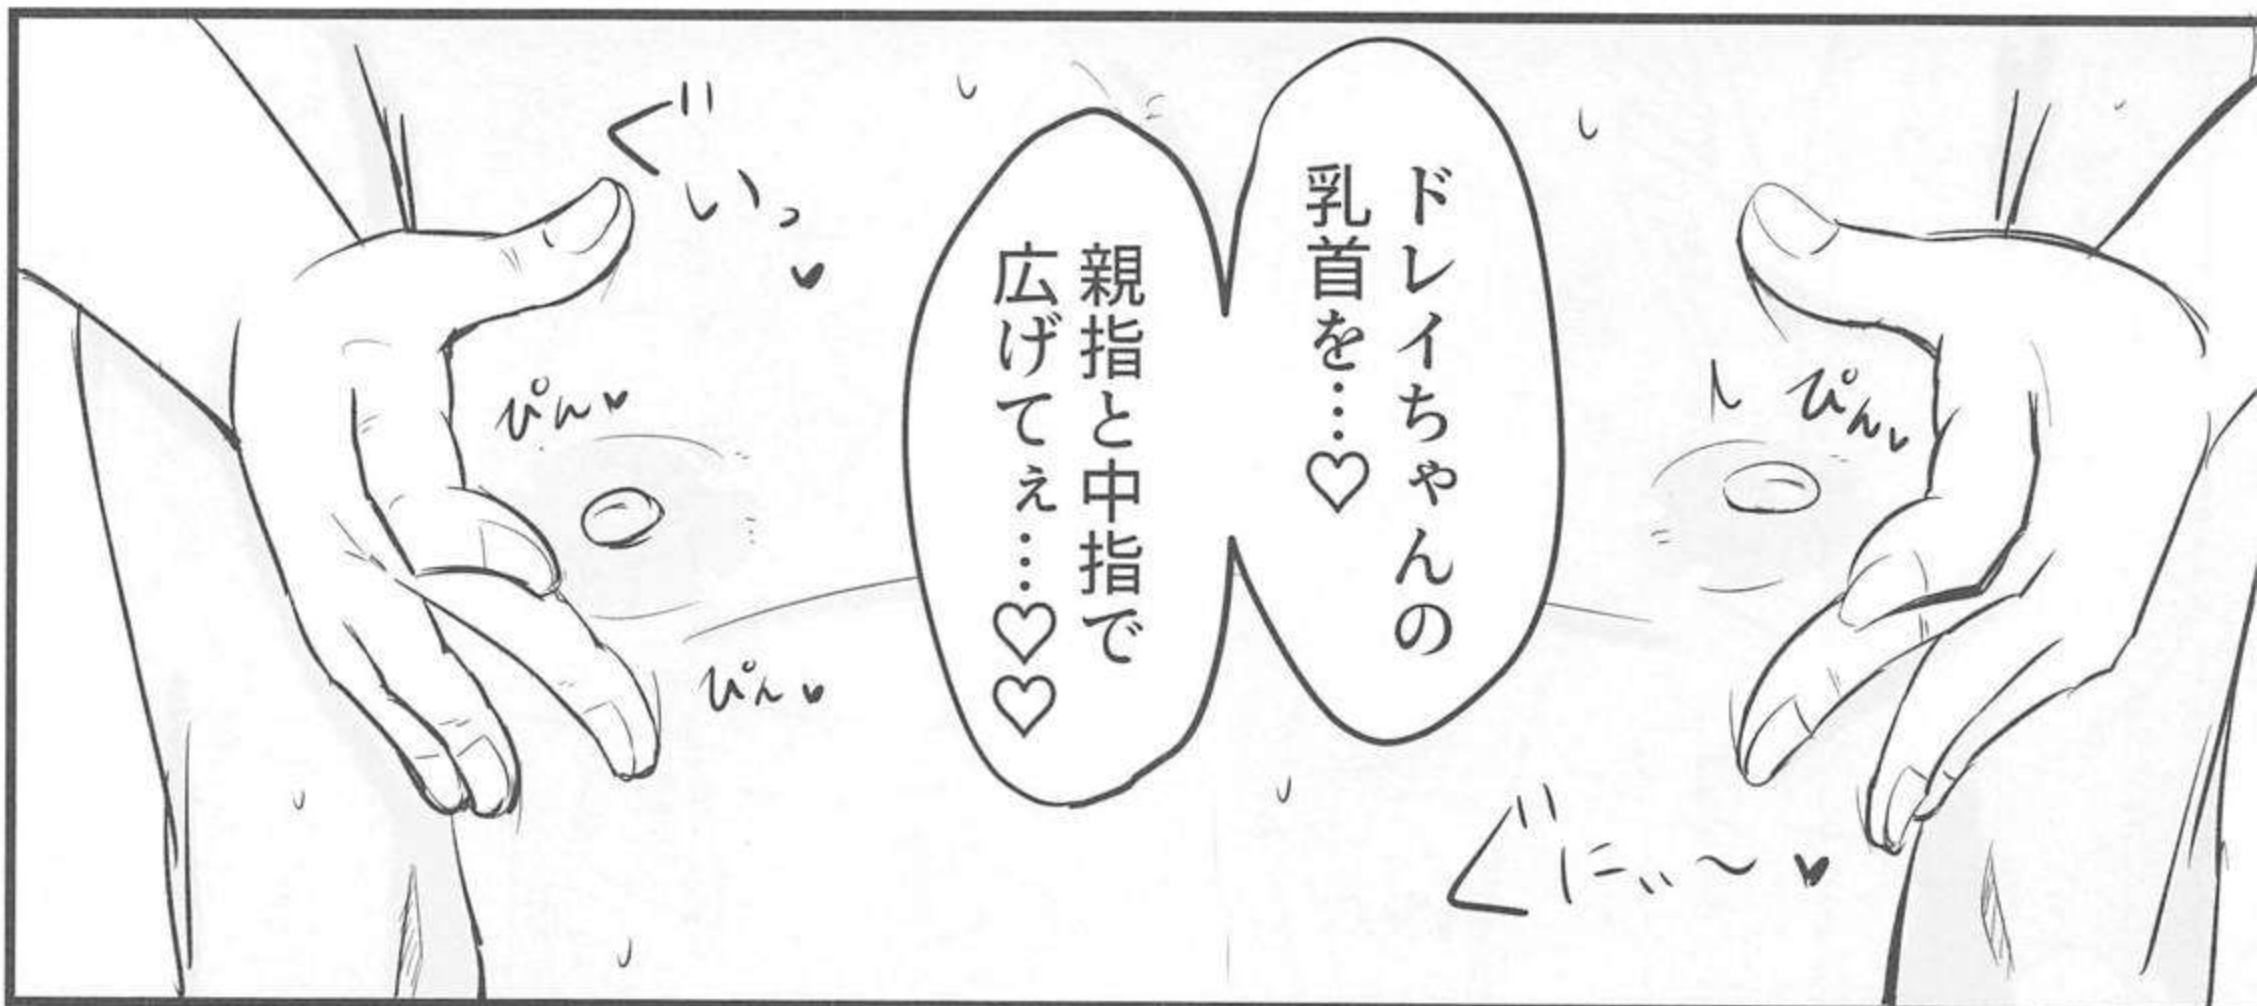 ドレイちゃんの
乳首を…♡
親指と中指で
広げてぇ…♡♡
ぐいっ♥
ぴん♥
ぴん♥
ぴん♥
ぐにぃ~♥